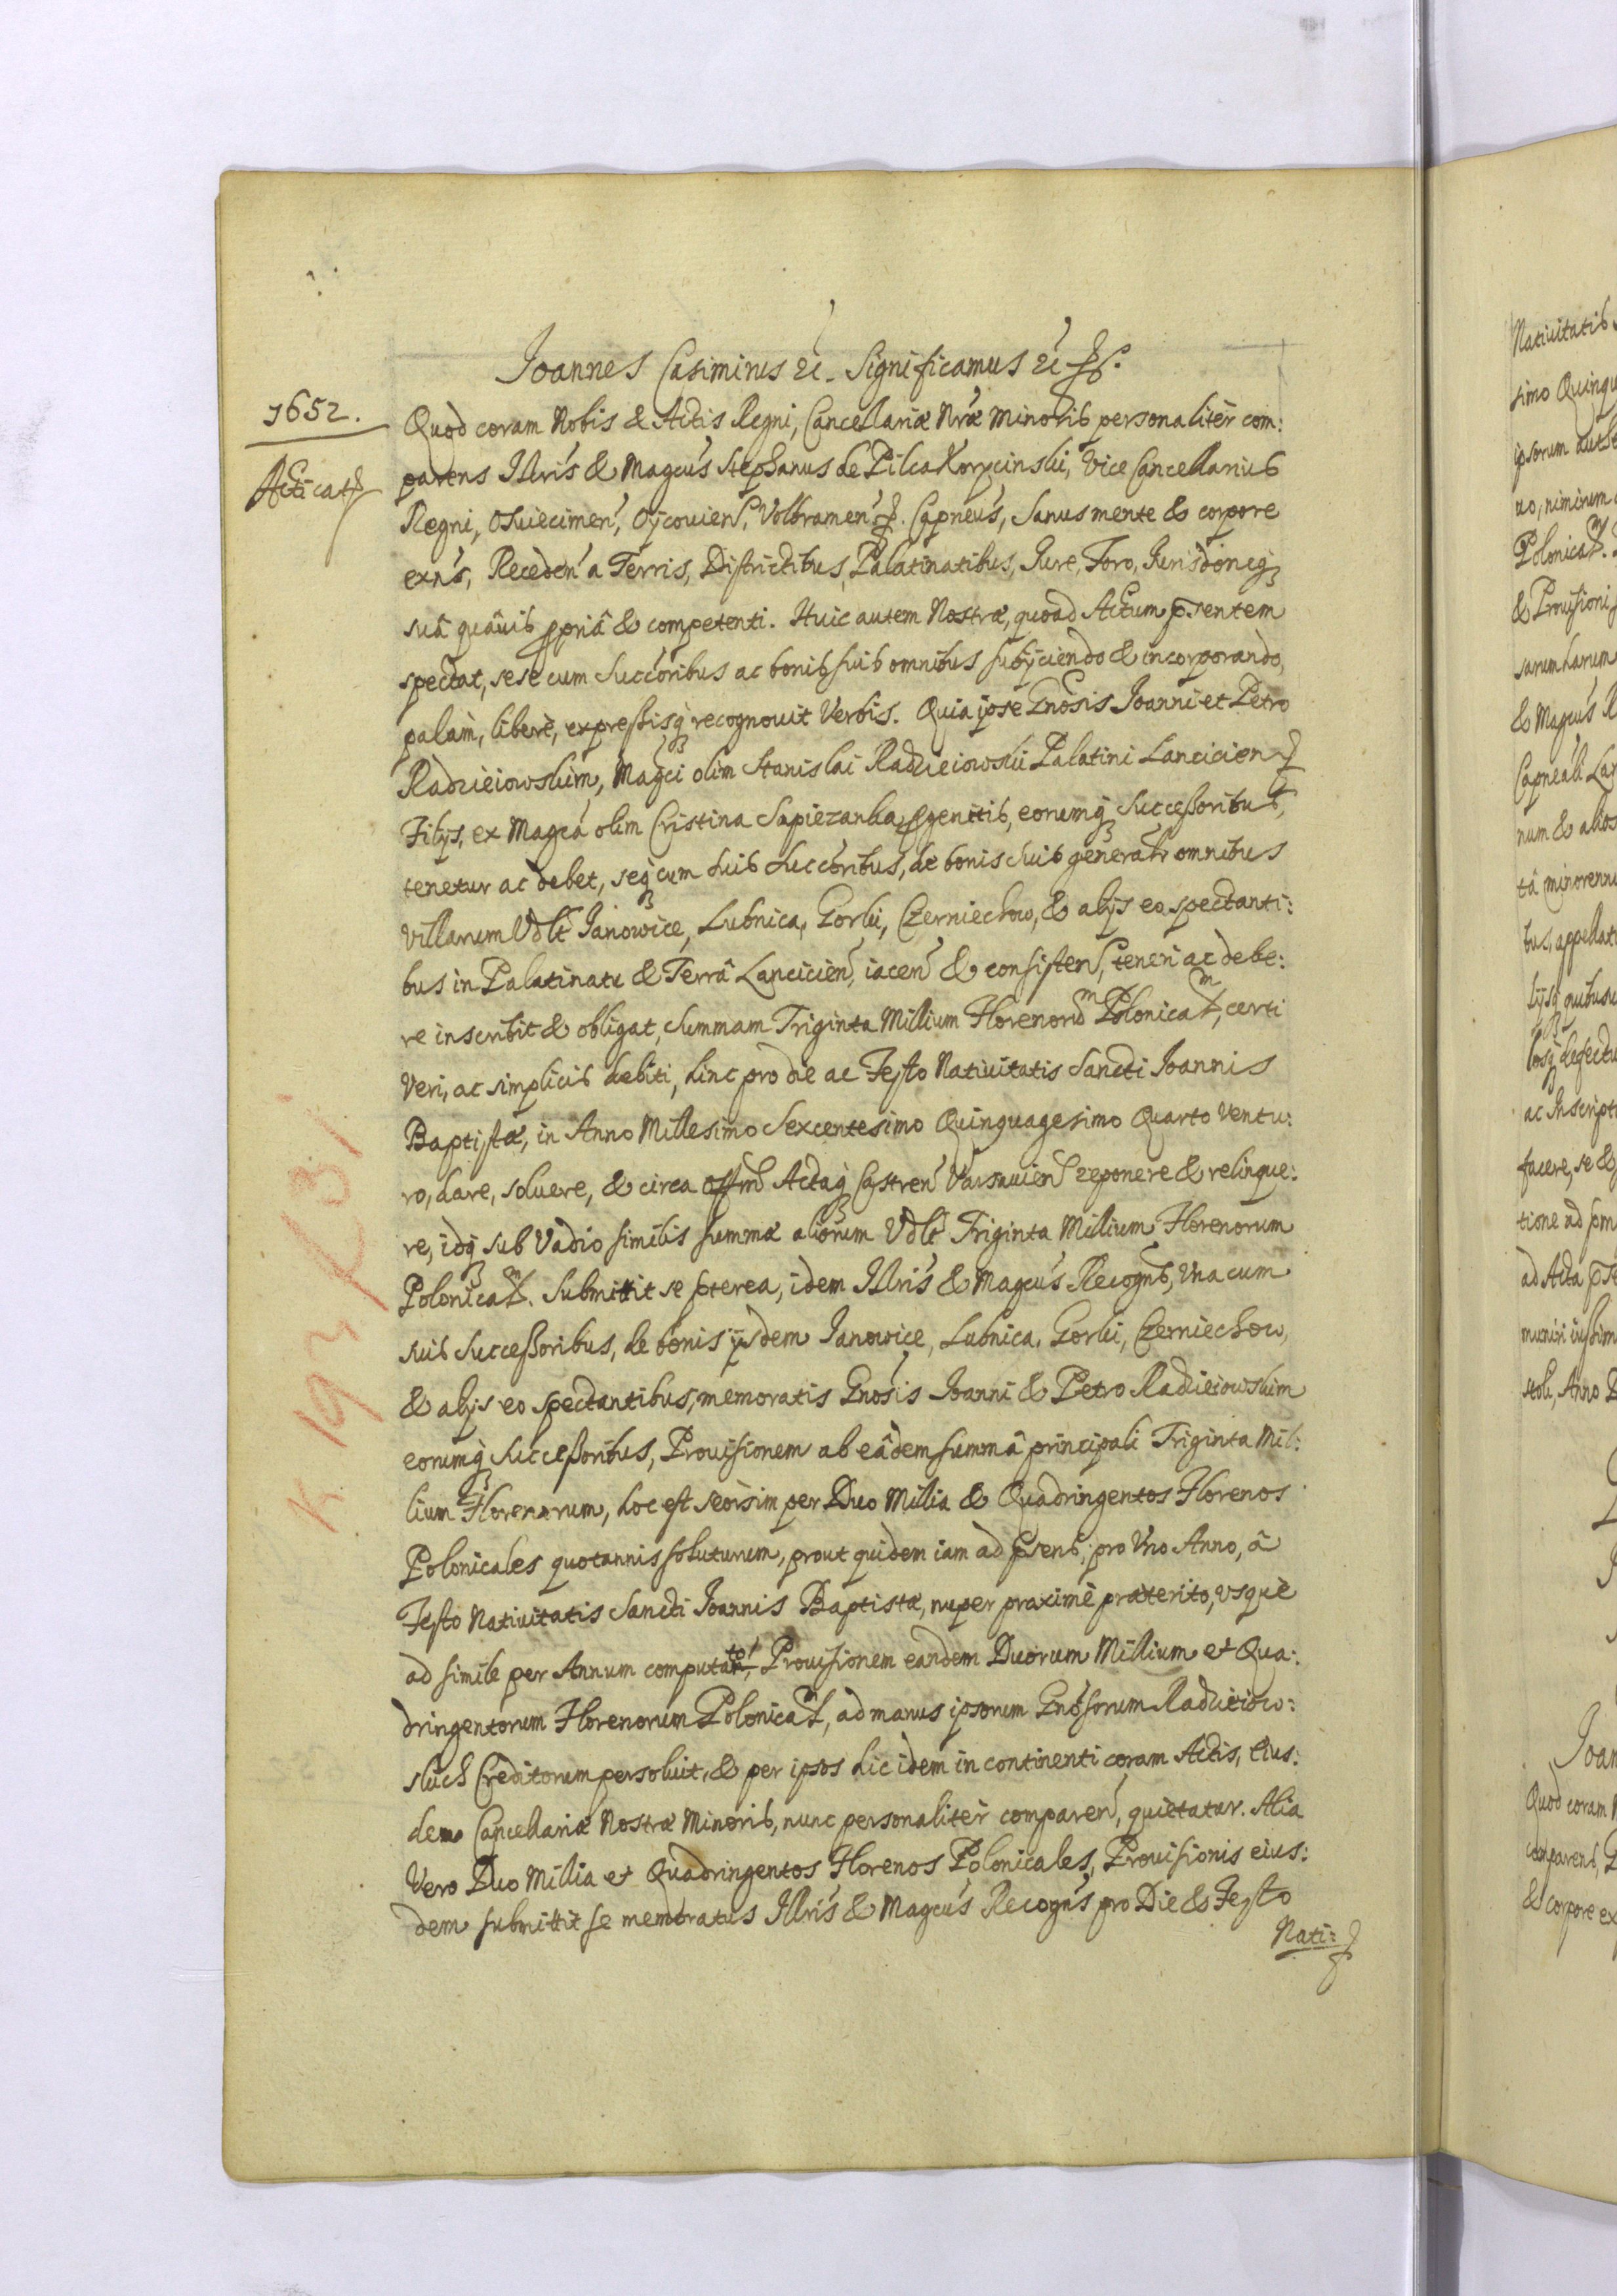 Joannes Casimirus etc. Significamus etc.
1652.
Acticat
Quod coram Nobis & Actis Regni, Cancellariæ Nræ Minoris personaliter com:
parens Illris & Magcus Stephanus de Pilca Korycinski, Vice Cancellarius
Regni, Osuiecimen, Oycouien, Volbramen. Capneus, sanus mente & corpore
exns, Receden a Terris, Districtibus, Palatinatibus, Iure, Foro, Iurisdoneq
suâ quâuis ppriâ & competenti. Huic autem Nostræ, quoad Actum psentem
spectat, sese cum Succoribus ac bonis suis omnibus subijciendo & incorporando,
palàm, liberè, expressisq recognouit Verbis. Quia ipse Gnosis Joanni et Petro
Radzieiowskim, Magci olim Stanislai Radzieiowskii Palatini Lancicien
Filijs, ex Magca olim Cristina Sapiezanka pgenitis, eorumq Successoribus,
tenetur ac debet, seq cum suis succoribus, de bonis suis generalr omnibus
Villarum Vdlt Janowice, Lubnica, Gorki, Czerniechow, & alijs eo spectanti:
bus in Palatinatu & Terrâ Lancicien, iacen & consisten, teneri ac debe:
re inscribit & obligat, summam Triginta Millium Florenorum Polonica, certi
Veri, ac simplicis debiti, hinc pro die ac Festo Natiuitatis Sancti Joannis
Baptistæ, in Anno Millesimo Sexcentesimo Quinquagesimo Quarto Ventu:
ro, dare, soluere, & circa Actaq Castren Varsauien reponere & relinque:
re, idq sub Vadio similis summæ aliorum Vdlt Triginta Millium Florenorum
Polonica. Submittit se pterea, idem Illris & Magcus Recogns, Vna cum
suis Successoribus, de bonis ijsdem Janowice, Lubnica, Gorki, Czerniechow,
& alijs eo spectantibus, memoratis Gnosis Joanni & Petro Radzieiowskim
eorumq Successoribus, Prouisionem ab eâdem summâ principali Triginta Mil:
lium Florenorum, hoc est seorsim per Duo Millia & Quadringentos Florenos
Polonicales quotannis soluturum, prout quidem iam ad psens, pro Vno Anno, â
Festo Natiuitatis Sancti Joannis Baptistæ, nuper proximè præterito, vsque
ad simile per Annum computato, Prouisionem eandem Duorum Millium et Qua:
dringentorum Florenorum Polonical, ad manus ipsorum Gnosorum Radzieiow:
skich Creditorum persoluit, & per ipsos hic idem in continenti coram Actis, eius:
dem Cancellariæ Nostræ Minoris, nunc personaliter comparen, quietatur. Alia
Vero Duo Millia et Quadringentos Florenos Polonicales, Prouisionis eius:
dem submittit se memoratus Illris & Magcus Recogns pro Die & Festo
Nati:
Natiuitatis
simo Quinqu
ipsorum
uo, nimirum
Polonica
& Prouisioni
sarum harum
& Magcus
Capneali
num & alios
tâ minorenni
bus, appellat
defectu
ac Inscript
facere, se &
tione ad
ad Acta
muniri iussim
Anno
Joan
Quod coram
comparens,
& corpore ex